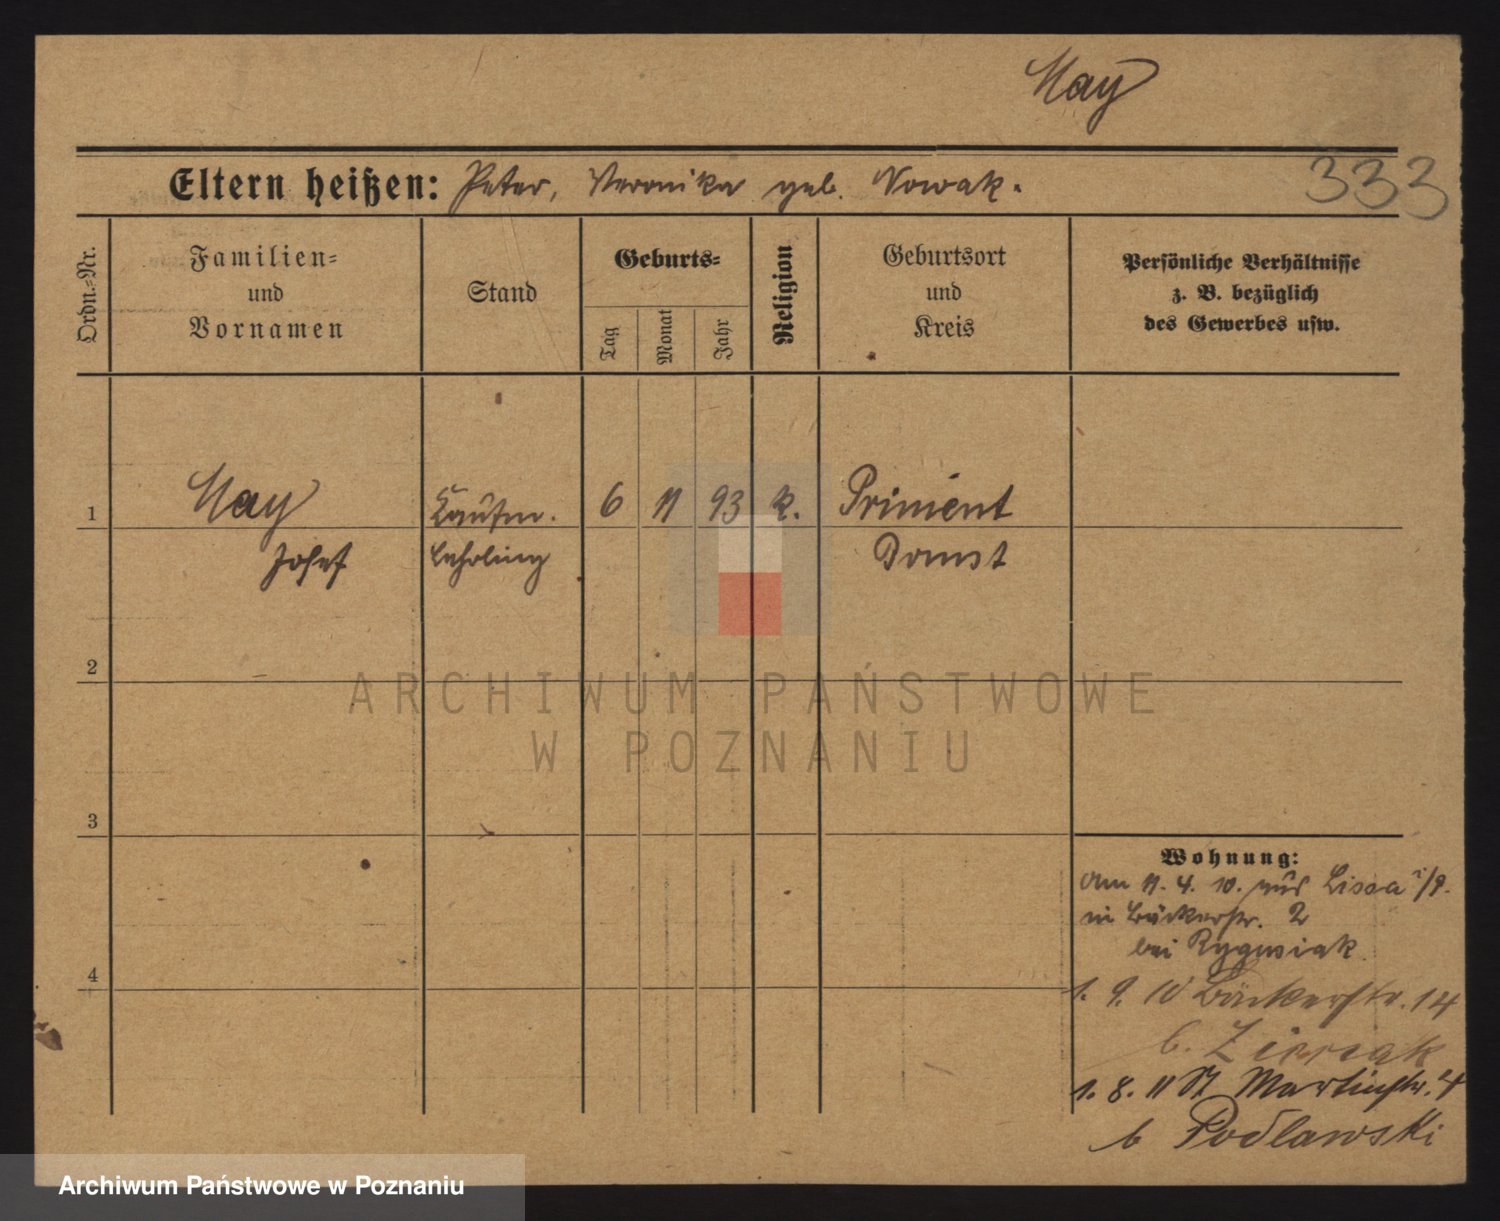 May
Eltern heißen: Peter, Veronika geb. Nowak.
333
Ordn.=Nr.
Familien=
und
Vornamen
Stand
Geburts=
Tag
Monat
Jahr
Religion
Geburtsort
und
Kreis
Persönliche Verhältnisse
z. B. bezüglich
des Gewerbes usw.
1 May Kaufm. 6 11 93 k. Priment
Josef Lehrling Bomst
2
ARCHIWUM PAŃSTWOWE
W POZNANIU
3
Wohnung:
Am 11. 4. 10. aus Lissa i/P.
in Bäckerstr. 2
bei
4
1. 9. 10 Bäckerstr. 14
b.
1. 8. 11 St Martinstr. 4
b Podlawski
Archiwum Państwowe w Poznaniu